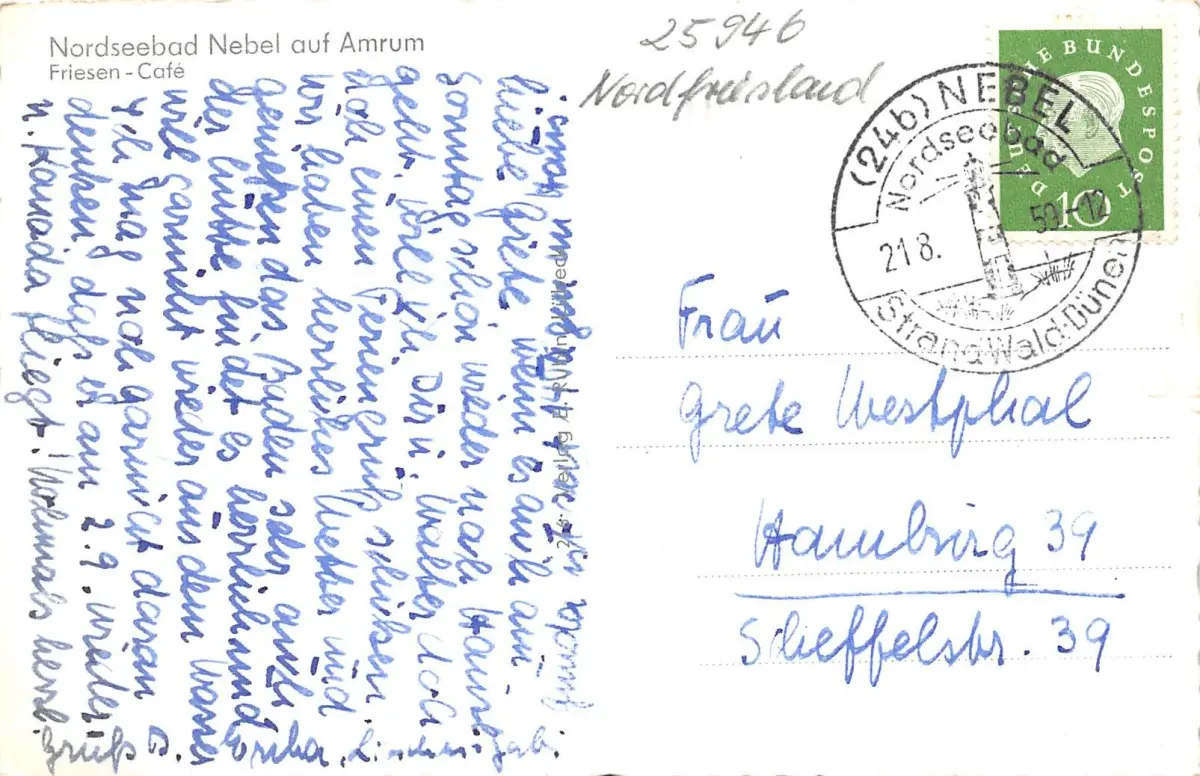 Nordseebad Nebel auf Amrum
Friesen-Café
25946
Nordfriesland
DEUTSCHE BUNDESPOST
10
(24b) NEBEL
Nordseebad
21 8. 59-12
Strand·Wald·Dünen
Frau
Grete Westphal
Hamburg 39
Scheffelstr. 39
Verlag
Liebe Grete wenn es auch am
Sonntag schon wieder nach Hause
geht, will ich Dir u. Walter doch
noch einen Feriengruß schicken
wir haben herrliches Wetter und
genießen das Baden sehr auch
der findet es herrlich und
will garnicht wieder aus dem Wasser
Ich mag noch garnicht daran
denken daß er am 2.9. wieder
n. Kanada fliegt. Nochmals herzl.
Gruß